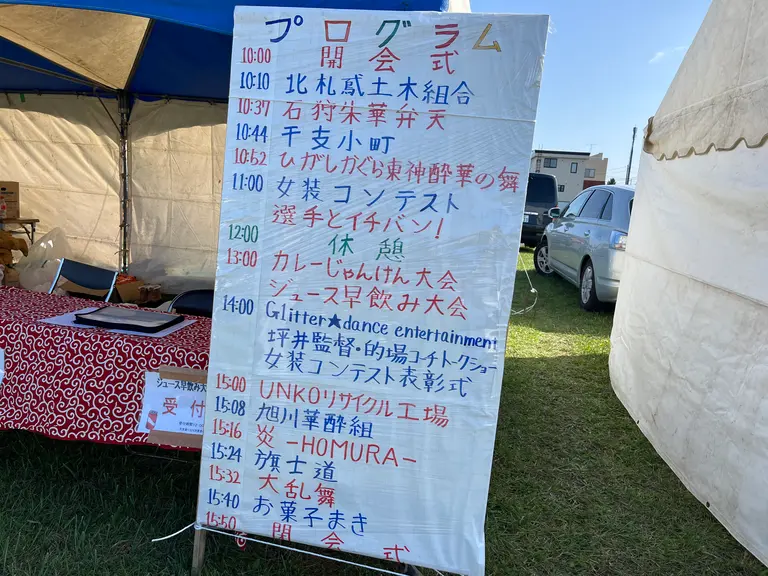 プログラム
10:00 開会式
10:10 北札鳶土木組合
10:37 石狩朱華弁天
10:44 干支小町
10:52 ひがしかぐら東神酔華の舞
11:00 女装コンテスト
選手とイチバン!
12:00 休憩
13:00 カレーじゃんけん大会
ジュース早飲み大会
14:00 Glitter★dance entertainment
坪井監督・的場コーチトークショー
女装コンテスト表彰式
15:00 UNKOリサイクル工場
15:08 旭川華酔組
15:16 炎-HOMURA-
15:24 旗士道
15:32 大乱舞
15:40 お菓子まき
15:50 閉会式
ジュース早飲み大
受付